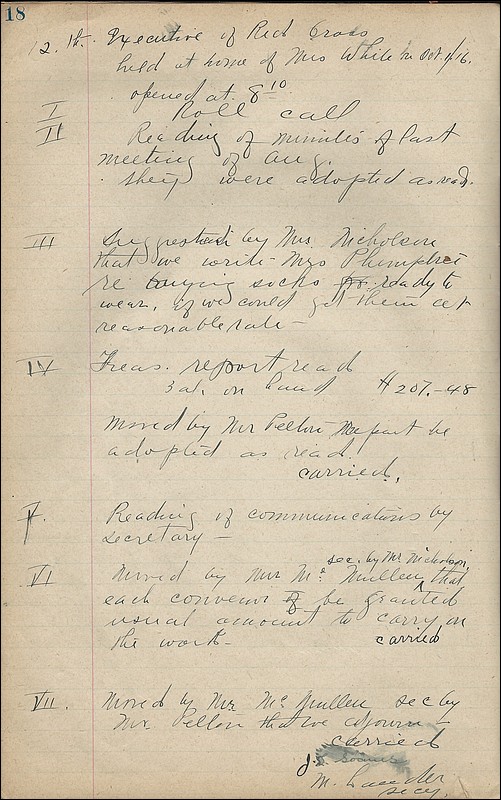 18
12.th. Executive of Red Cross
held at home of Mrs White in Oct. 4/16.
opened at 8.10
I Roll call
II Reading of minutes of last
meeting of Aug.
they were adopted as read.
III Suggested by Mrs. Nicholson
that we write Mrs Plumptre
re buying socks ready to
wear, if we could get them at
reasonable rate -
IV Treas. report read
Bal. on hand $207.-48
Moved by Mrs Pellow report be
adopted as read
carried.
V. Reading of communications by
secretary -
sec. by Mrs. Nicholson,
VI Moved by Mrs Mc Mullen that
each convenor be granted
usual amount to carry on
the work - carried
VII. Moved by Mrs Mc Mullen sec by
Mrs. Pellow that we adjourn -
carried
M. Lauder
secy.